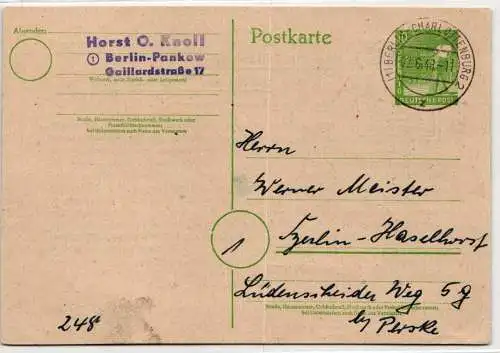 Absender:
Horst O. Knoll
(1) Berlin-Pankow
Gaillardstraße 17
Wohnort, auch Zustell- oder Leitpostamt
Straße, Hausnummer, Gebäudeteil, Stockwerk oder
Postschließfachnummer;
bei Untermietern auch Name des Vermieters
Postkarte
(1) BERLIN-CHARLOTTENBURG 2
DEUTSCHE POST
Herrn
Werner Meister
1
Berlin-Haselhorst
Lüdenscheider Weg 5g
Straße, Hausnummer, Gebäudeteil, Stockwerk oder Postschließfachnummer;
bei Untermietern auch Name des Vermieters
by Perske
248a